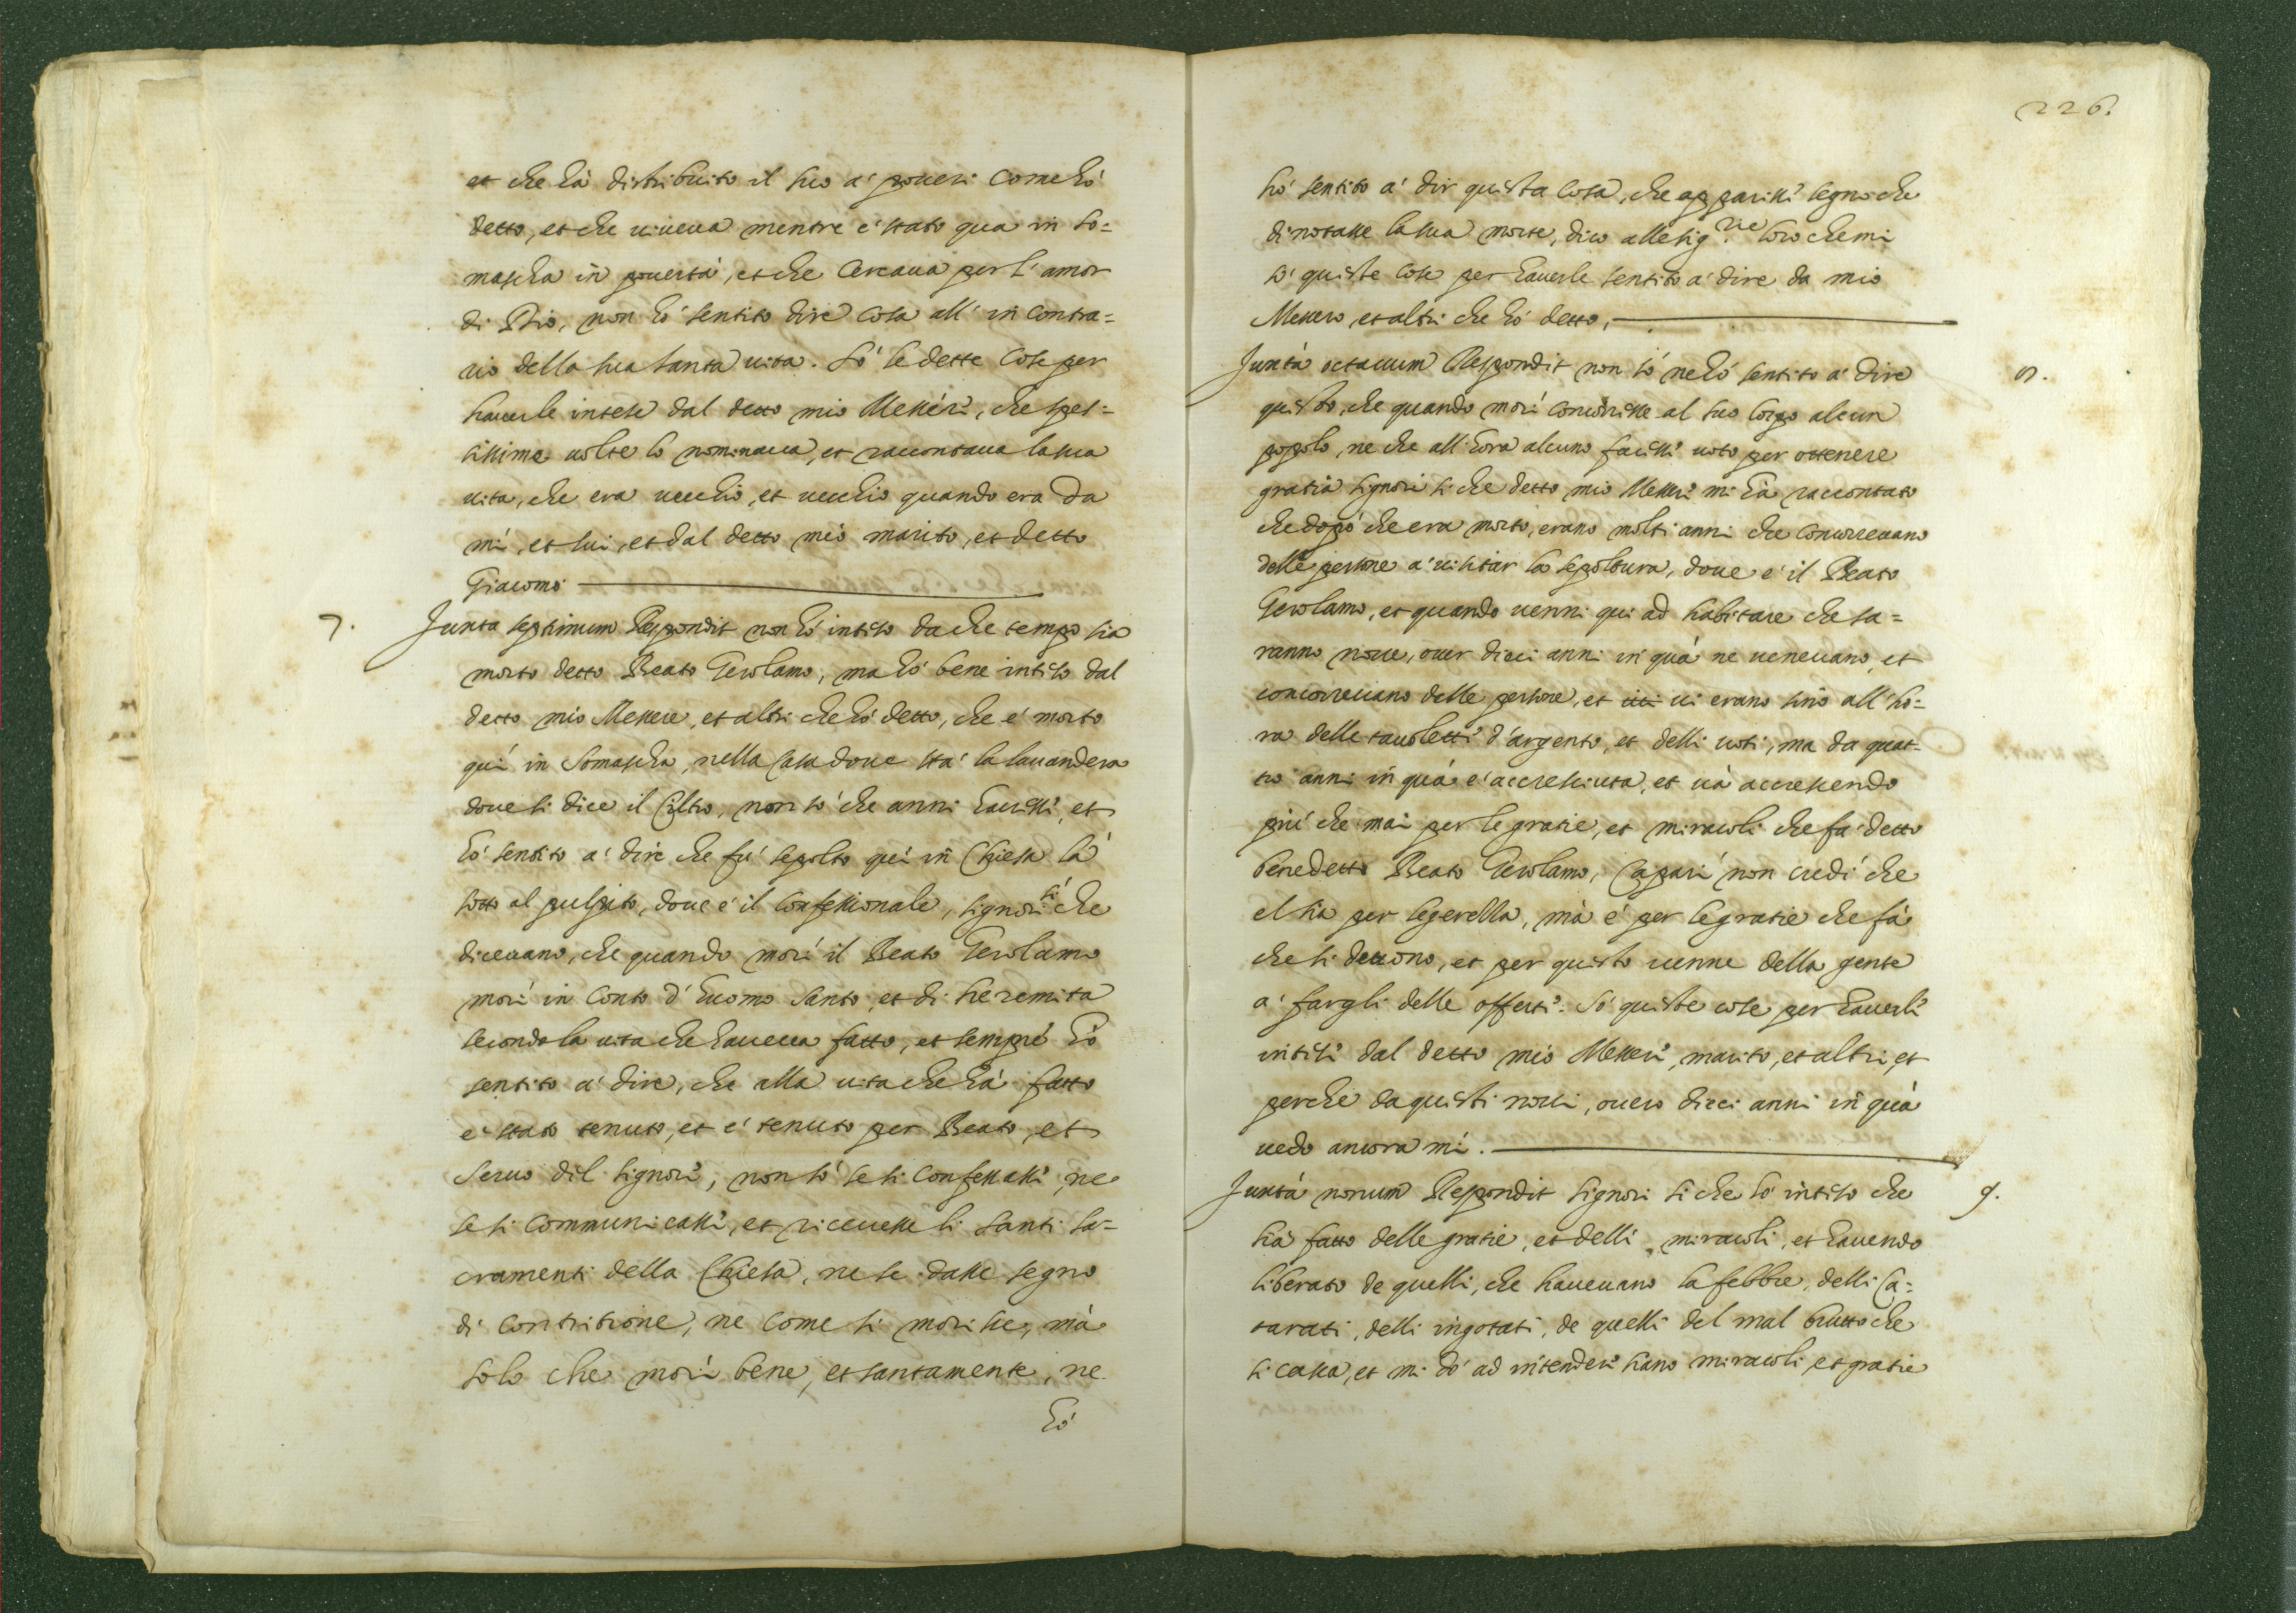 et che hà distribuito il suo a' poueri come hò
detto, et che uiueua mentre è stato qua in So=
mascha in pouertà, et che cercaua per l'amor
di Dio, non hò sentito dire cosa all'in contra=
rio della sua santa uita. Sò le dette cose per
hauerle intese dal detto mio Messere, che spes=
sissime uolte lo nominaua, et raccontaua la sua
uita, che era uecchio, et uecchio quando era da
mi, et lui, et dal detto mio marito, et detto
Giacomo
7. Juxta septimum Respondit non hò inteso da che tempo sia
morto detto Beato Gerolamo, ma hò bene inteso dal
detto mio Messere, et altri che hò detto, che è morto
quì in Somascha, nella Casa doue stà la lauandera
doue si dice il Ciltro, non sò che anni hauesse, et
hò sentito a' dire che fù sepolto quì in Chiesa là
sotto al pulpito, doue è il Confessionale, signori sì che
diceuano, che quando morì il Beato Gerolamo
morì in conto d'huomo santo, et di heremita
secondo la uita che haueua fatto, et sempre hò
sentito a' dire, che alla uita che hà fatto
è stato tenuto, et è tenuto per Beato, et
seruo dil signore, non sò se si confessasse, ne
se si communicasse, et riceuesse li santi sa=
cramenti della Chiesa, ne se dasse segno
di contritione, ne come si morisse, mà
solo che morì bene, et santamente, ne
hò
226.
hò sentito a' dir questa cosa, che apparisse segno che
dinotasse la sua morte, dico alle sig.rie loro che mi
sò queste cose per hauerle sentito a' dire da mio
Messero et altri che hò detto,
Juxta octauum Respondit non sò ne hò sentito a' dire 8.
questo, che quando morì concorresse al suo corpo alcun
popolo, ne che all'hora alcuno facesse uoto per ottenere
gratia signori sì che detto mio Messere mi hà raccontato
che dopò che era morto, erano molti anni che concorreuano
delle persone a' uisitar la sepoltura, doue è il Beato
Gerolamo, et quando uenni qui ad habitare che sa=
ranno noue, ouer dieci anni in quà ne ueneuano, et
concorreuano delle persone, et ui erano sino all'ho=
ra delle tauolette d'argento, et delli uoti, ma da quat=
tro anni in quà è accresciuta, et uà accrescendo
più che mai per le gratie, et miracoli che fà detto
benedetto Beato Gerolamo, Capari non credi che
el sia per legerella, mà è per le gratie che fà
che si deuono, et per questo uenne della gente
a' fargli delle offerte. Sò queste cose per hauerle
intese dal detto mio Messere, marito, et altri, et
perche da questi noue, ouero dieci anni in quà
uedo ancora mi.
Juxta nonum Respondit signori si che hò inteso che 9.
hà fatto delle gratie, et delli miracoli, et hauendo
liberato de quelli, che haueuano la febbre, delli Ca=
tarati, delli ingotati, de quelli del mal brutto che
si casca, et mi dò ad intendere siano miracoli et gratie